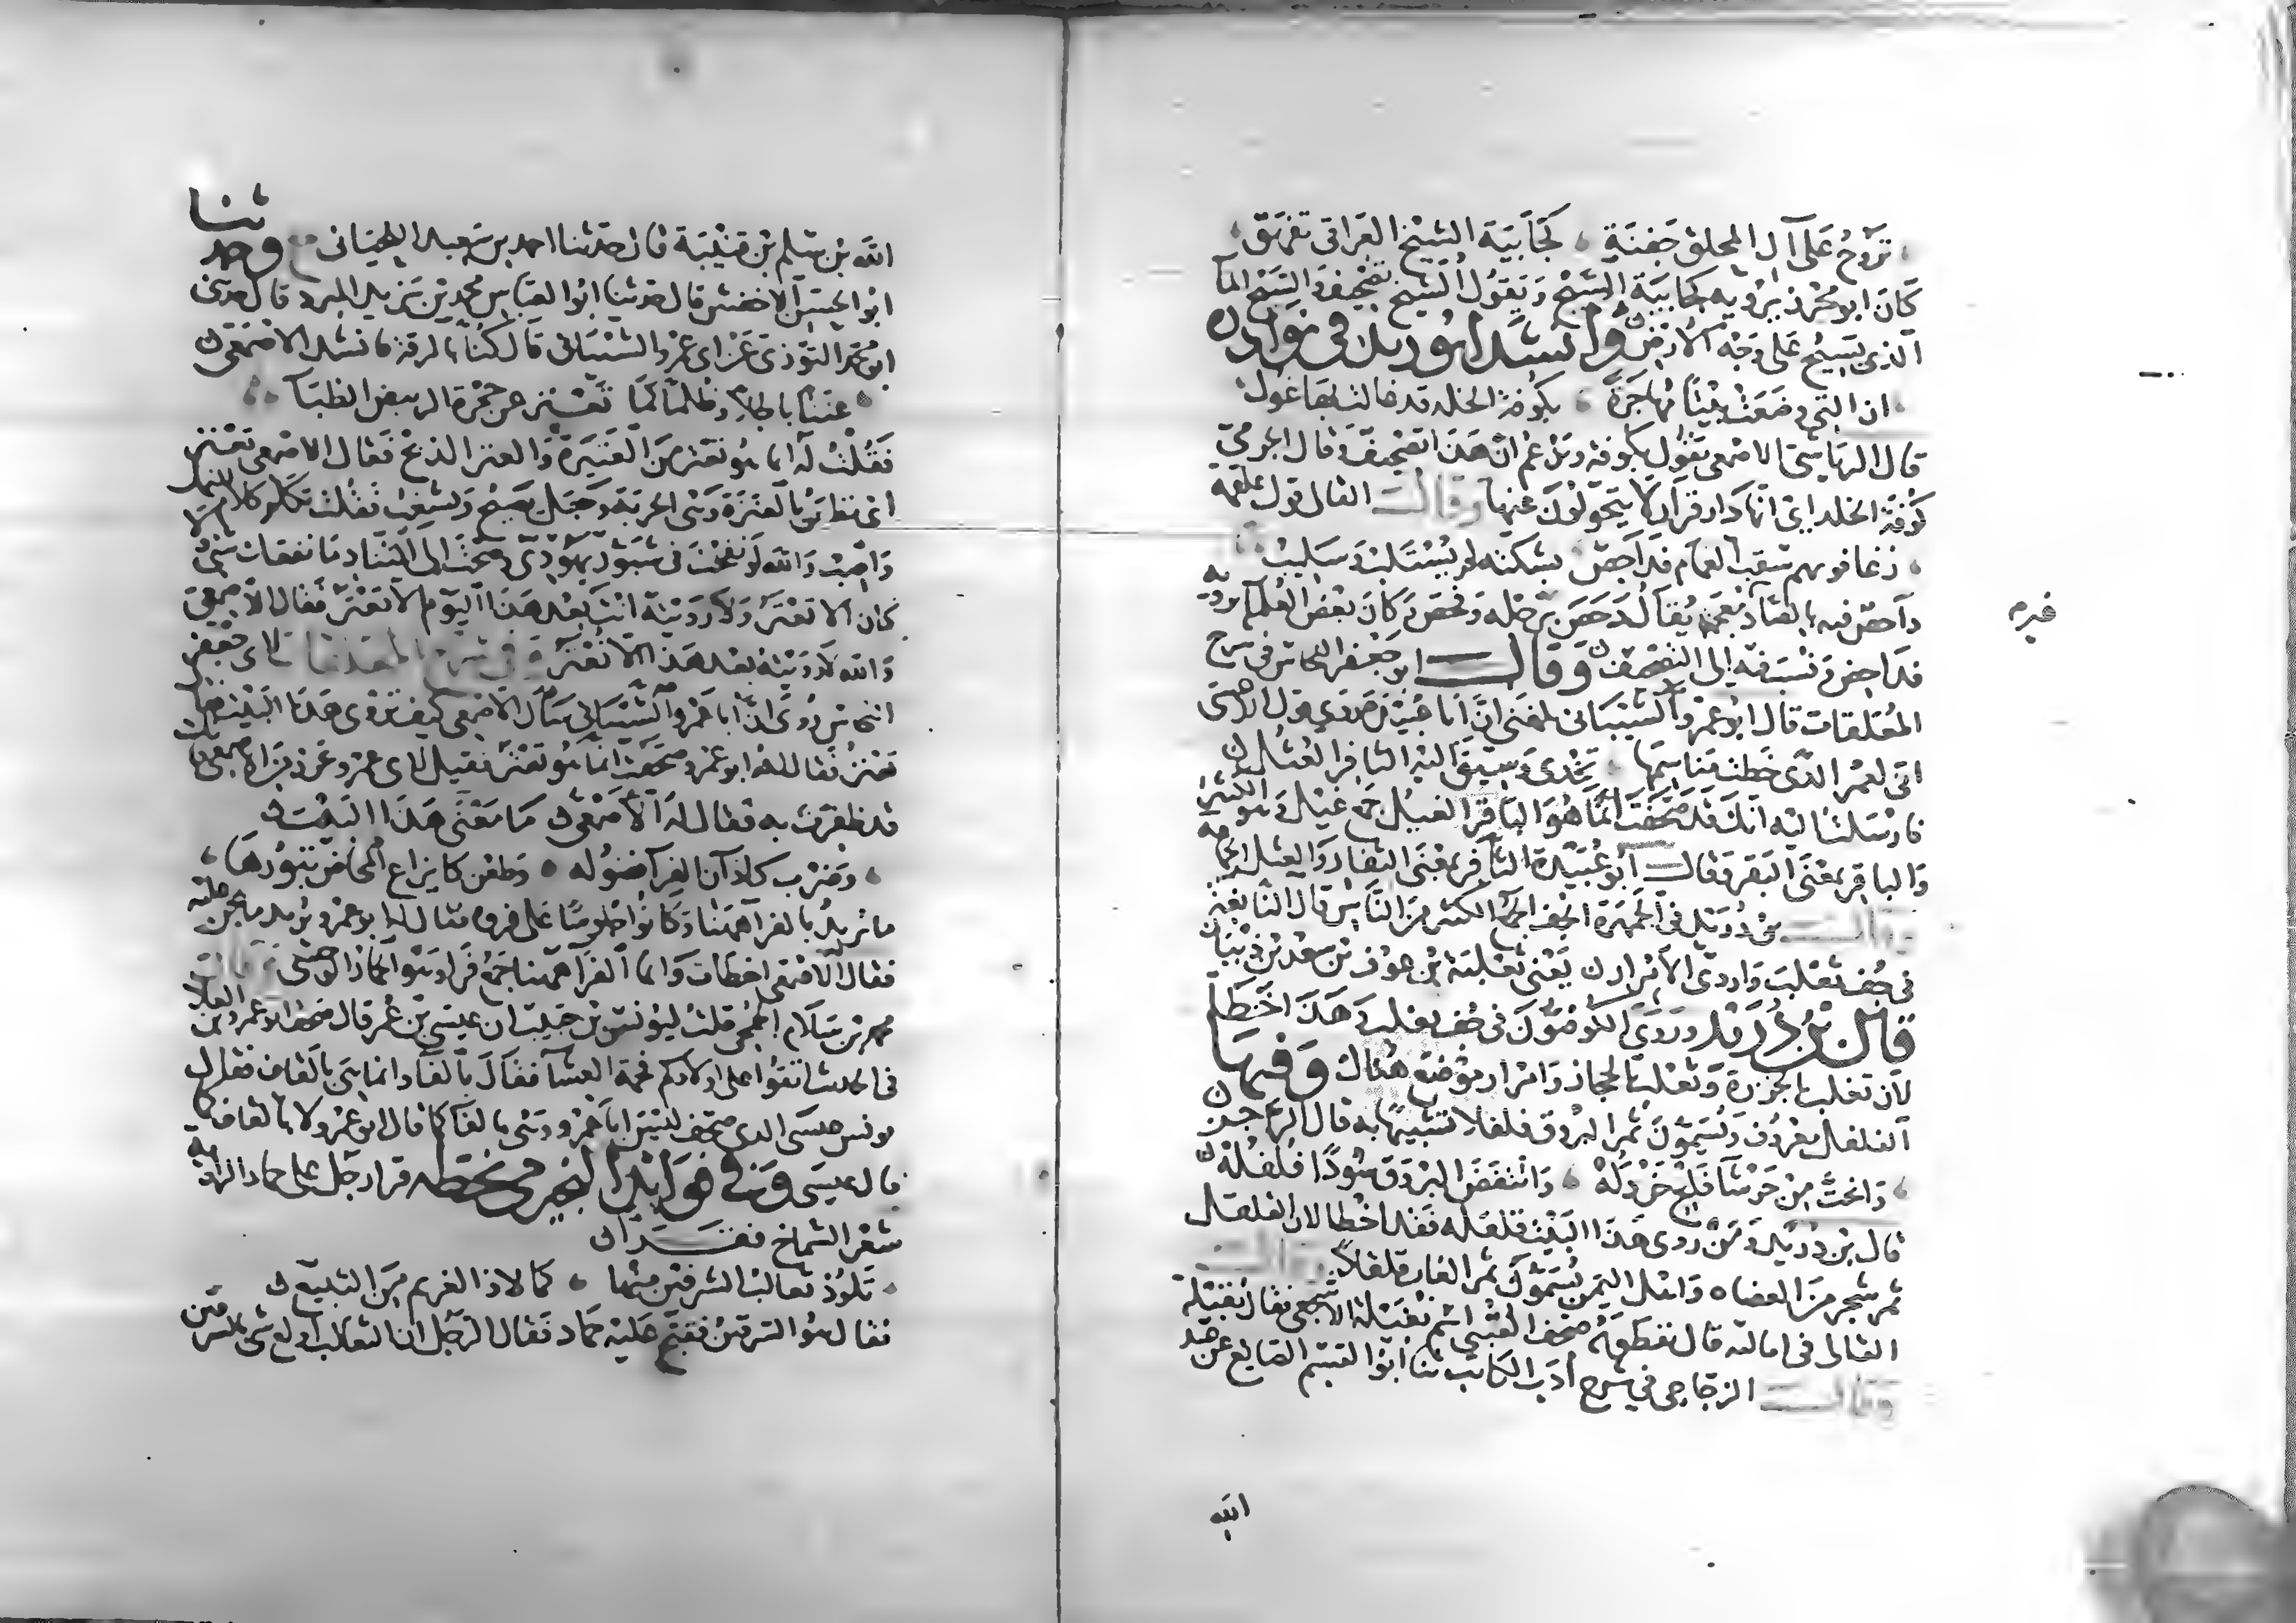 تَرُوحُ عَلَى آل المحلق جَفنَةٍ ، كَجَابَيَة الشيخ العراقى تَفهَقُ ،
كَانَ ابو محرز يرويه كجابية الشيح وَيَقُول الشيخ تصحيف والسيح المآ
الذى يسيح عَلى وَجْه الأرض وانشَد ابُو زيد في نوَادره
ان التي وضعَتْ بَيْتًا مُهَاجَرَةً ، بكوفة الخلد قد غالت بها غول
قال الرياشى الاصمعي يَقول بكوفة ويزعم انّ هَذَا تصحيف وَقال الجرمى
كوفة الخلد اي انها دار قرار لا يتحولون عنها وقال القال قول علقمة
، رغا فوقهم سقب السماء فداحص ، بشكته لم يُسْتَلَب وَسَليبُ
داحص فيه بالصاد غير معجمة يُقَالُ دَحَصَ برجله وفحص وَكانَ بَعْض العُلَماء يرويه
فداحض وَنُسِبَ فيه إلى التصحيف وَقَال ابو جَعْفر النحاس فى شرح
المُعَلقات قال ابُو عمرو الشيبَانى بلغنى انّ ابا عُبَيْدة روى قول الاعشى
انّى لعمر الذى خطت مناسمها ، تخْدى وَسيقَ اليْه الثافر العثل
فارسلت اليه انكَ قد صَحّفت انّما هُوَ البَاقر الغيل جمع غيل وَهو الكثير
وَالباقر بمَعْنَى البَقر وَقال أبو عُبَيْدة الثافر بمَعْنى الثفار وَالعثل الجماعة
وقال بن دُرَيْد في الجَمْهَرَة الجف الجمع الكثير مِنَ النَّاس قال النابغة
فى جُف تغلب وَاردى الأمرار يَعْنى ثَعْلبَة بن عوف بن سَعْد بن ذبْيَان
قال بن دُرَيد وَرَوَى الكوفيُّونَ فى جُف تغلب وَهَذَا خَطَأ
لأن تغلب بالجزيرة وَثعْلبة بالحجاز وَامْرار موْضع هُناك وَفيهَا
الفلفل معْرُوف وَيُسَمّون ثمر البَرْوَق فلفلا تشبيهًا به قال الراجز
، وَانحتَّ مِنْ حَرْشَآء فَلْجٍ خَرْدَلُهْ ، وَانْتَفَضَ البَرْوَق سُودًا فُلْفُلُهْ
قال بن دُرَيْد وَمَنْ رَوى هَذَا البَيْت قلقله فقد اخطا لان القلقل
ثمر شجر مِنَ العضاه وَاهل اليَمَن يُسَمّونَ ثمر الغاب قلقلا وقال
القالى فى اماليه قال نفطويه صحف العُتْبى اسْم نُفَيْلة الاشجعى فقال نُقَيْلة
وقال الزجاجى في شرح أدب الكاتب ثنا ابُو القسم الصايغ عن عبد
الله
الله بن مسلم بن قتَيْبَة قال حدّثنا احمد بن سَعيد اللحيَانى ح وحدثنا
ابو الحسَن الاخفش قال حدّثنا ابُو العَبّاس محمد بن يَزيد المبرد قال حدثنى
ابُو محمد التّوزى عَنْ ابى عمرو الشَّيْبَانى قالَ كُنّا بالرقة فانشد الاصْمَعي
، عَنَنًا باطلاً وَظُلمًا كَمَا تُعْنَزُ عن حَجْرَة الربيض الظبَآء
فَقُلْتُ لَه انما هُو تعْتر مِنَ العَتيرَة وَالعتر الذبح فَقال الاصمعى تعْنز
اى تطعَن بالعَنَزَة وَهْىَ الحربَة وَجَعَل يَصيحُ وَيشغبُ فَقُلتُ تكلم كلام النمل
وَاصِبْ وَالله لَوْ نفخْتَ فى شَبّور يَهُودىّ وصحْتَ الى التّنَاد مَا نفعك شىء
كان الا تُعْتَر وَلا رَوَيْتَه انْتَ بَعْد هَذَا اليَوْم الا تُعْتَر فَقال الاصمعى
وَالله لا رَوَيْته بعْد هَذَا الا تُعْنَز وَفي شَرح المعلقات لابى جعْفر
النحاس رُوىَ انّ ابا عَمْرو الشّيْبَانى سَألَ الاصمعى كيف تَرْوى هَذَا البَيْت فقال
تعْنز فَقال لَه ابو عمرو صَحّفت انّما هُو تُعْتر فقيل لابى عمرو تحرز مِن الاصمعي فانك
قد ظفرت به فقال لهُ الأصْمَعى مَا مَعْنَى هَذَا البَيْت
، وَضَرْب كاذآن الفرآء فضُوله ، وَطَعْن كايزاغ المخاض تبُورُهَا ،
ما تريد بالفرآ هَهُنا وَكانُوا جلوسًا عَلى فروه فقال لهُ ابو عمرو يُريد ما نحن عليْه
فقال الأصمعى اخطات وَانما الفرآ هَهُنا جَمْع فَرَا وَهُو الحمار الوَحْشى وَقال
محمد بن سَلام الجمحى قلت ليُونس بن حبيب ان عيسى بن عُمر قال صحف ابُو عمرو بن العلآ
فى الحديث اتقُوا على اولادكم فحمة العشآ فقالَ بالفآ وَانما هى بالقاف فقال
يونس عيسَى الذى صحف لَيْسَ ابا عَمْرو وَهْىَ بالفآ كما قال ابُو عمرو لا بالقاف كما
قال عيسَى وَفي هَوَامِش النجيرمى بخطه قرأ رجُل على حماد الراوية
شعْر الشماخ فقرأ
، تلُوذ ثعالب الشرفين مِنها ، كما لاذ الغريم مِنَ التبيع
فقال هُو السرقين فقبح عليْه حَمّاد فقال الرجُل ان الثعالب اولع شى بالسرقين